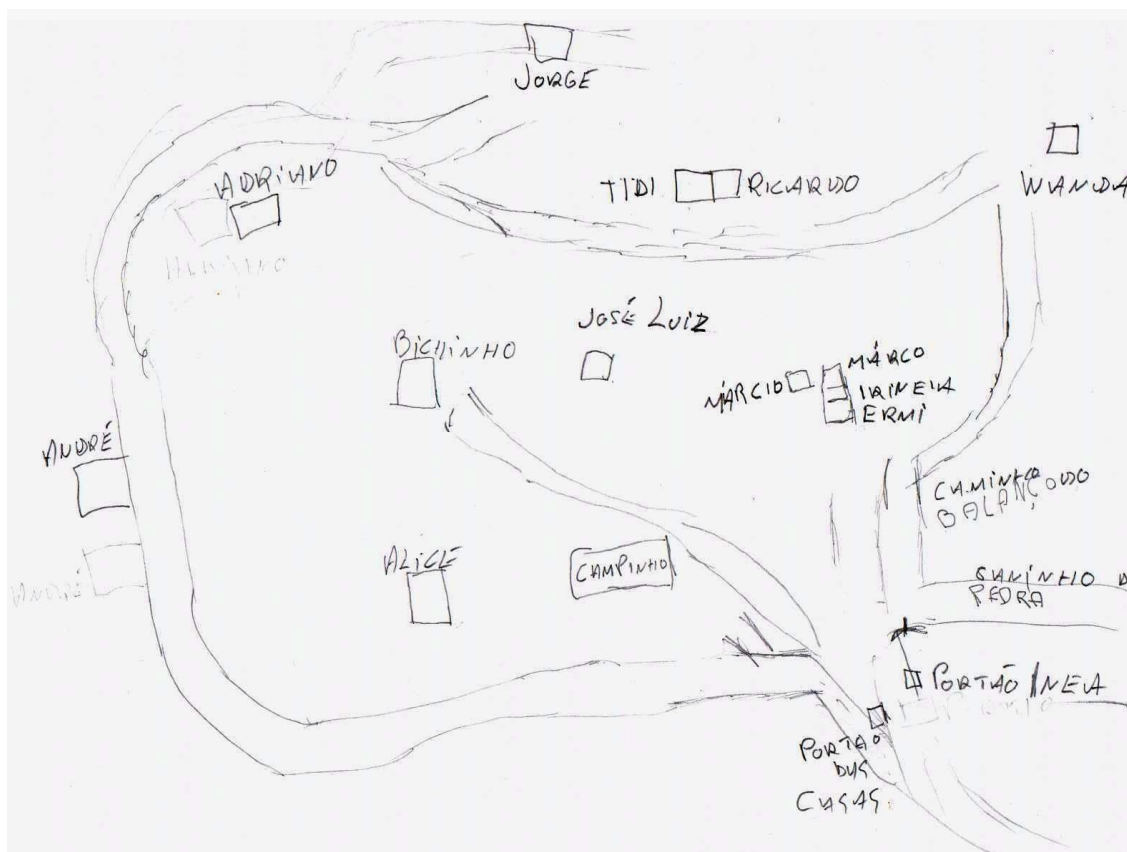 JORGE
ADRIANO
TIDI
RICARDO
WANDA
JOSÉ LUIZ
BICHINHO
MÁRCIO
MÁRCO
IRINEIA
ERMI
ANDRÉ
CAMINHO DO
BALANÇO
ALICE
CAMPINHO
PEDRA
ANDRÉ
PORTÃO INEA
PORTÃO
DAS
CASAS